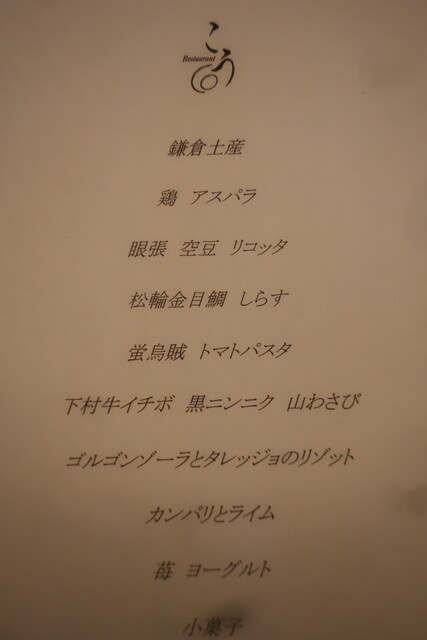 こう
Restaurant
鎌倉土産
鶏 アスパラ
眼張 空豆 リコッタ
松輪金目鯛 しらす
蛍烏賊 トマトパスタ
下村牛イチボ 黒ニンニク 山わさび
ゴルゴンゾーラとタレッジョのリゾット
カンパリとライム
苺 ヨーグルト
小菓子